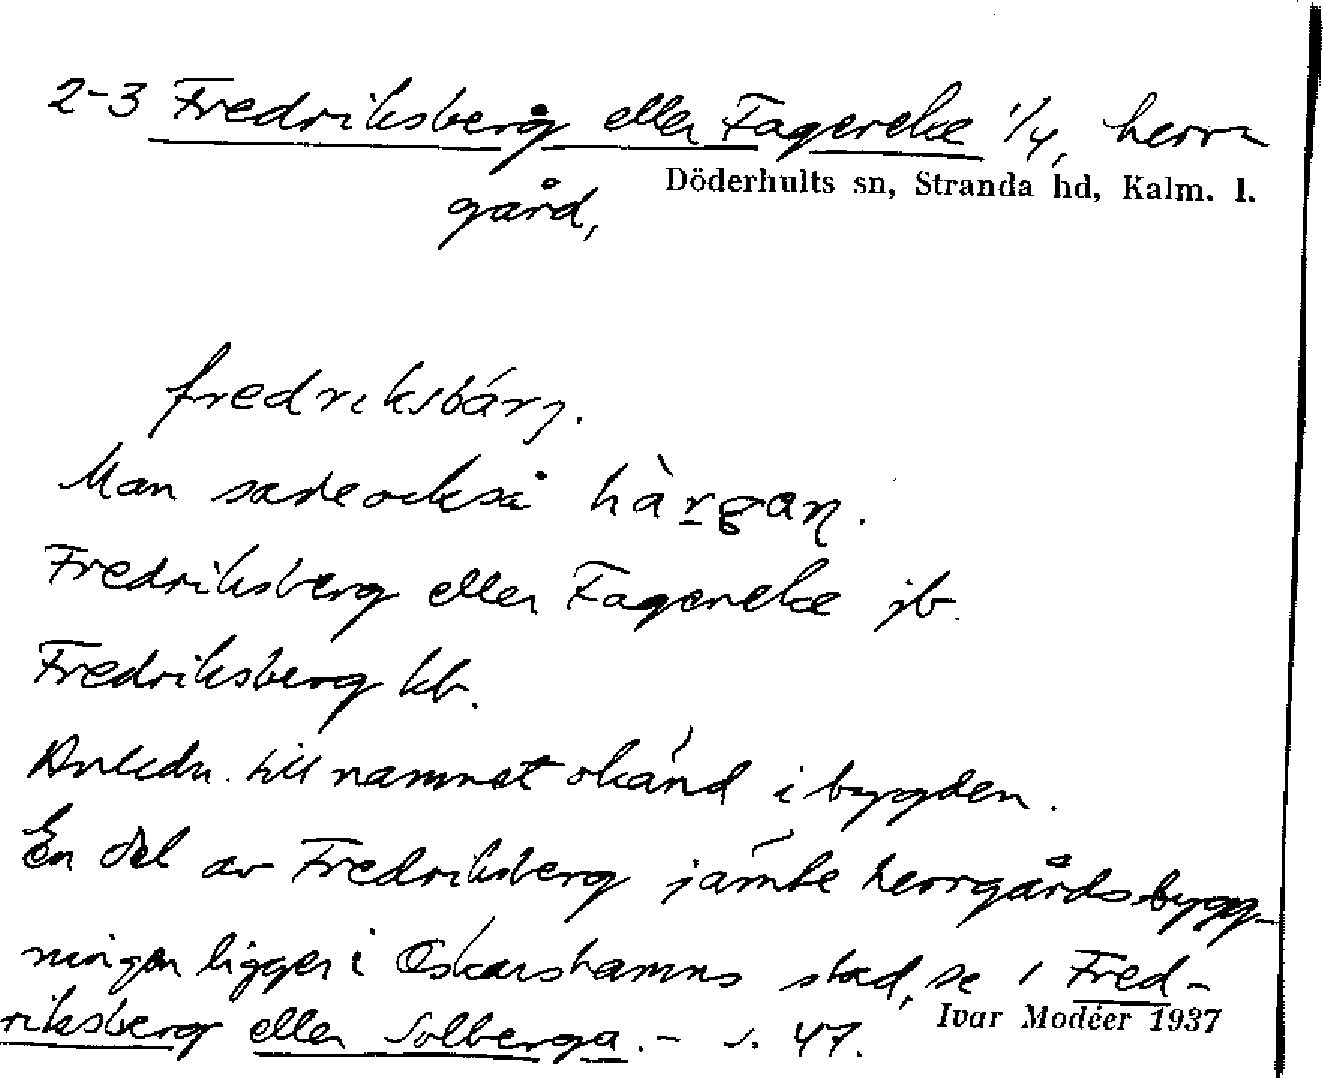 2-3 Fredriksberg eller Fagereke 1/4, herr-
Döderhults sn, Stranda hd, Kalm. l.
gård,
fredriksbárj.
Man sade också hàrgan.
Fredriksberg eller Fagereke jb.
Fredriksberg kb.
Anledn. till namnet okänd i bygden.
En del av Fredriksberg jämte herrgårdsbygg-
ningen ligger i Oskarshamns stad, se 1 Fred-
riksberg eller Solberga. - s. 47.
Ivar Modéer 1937